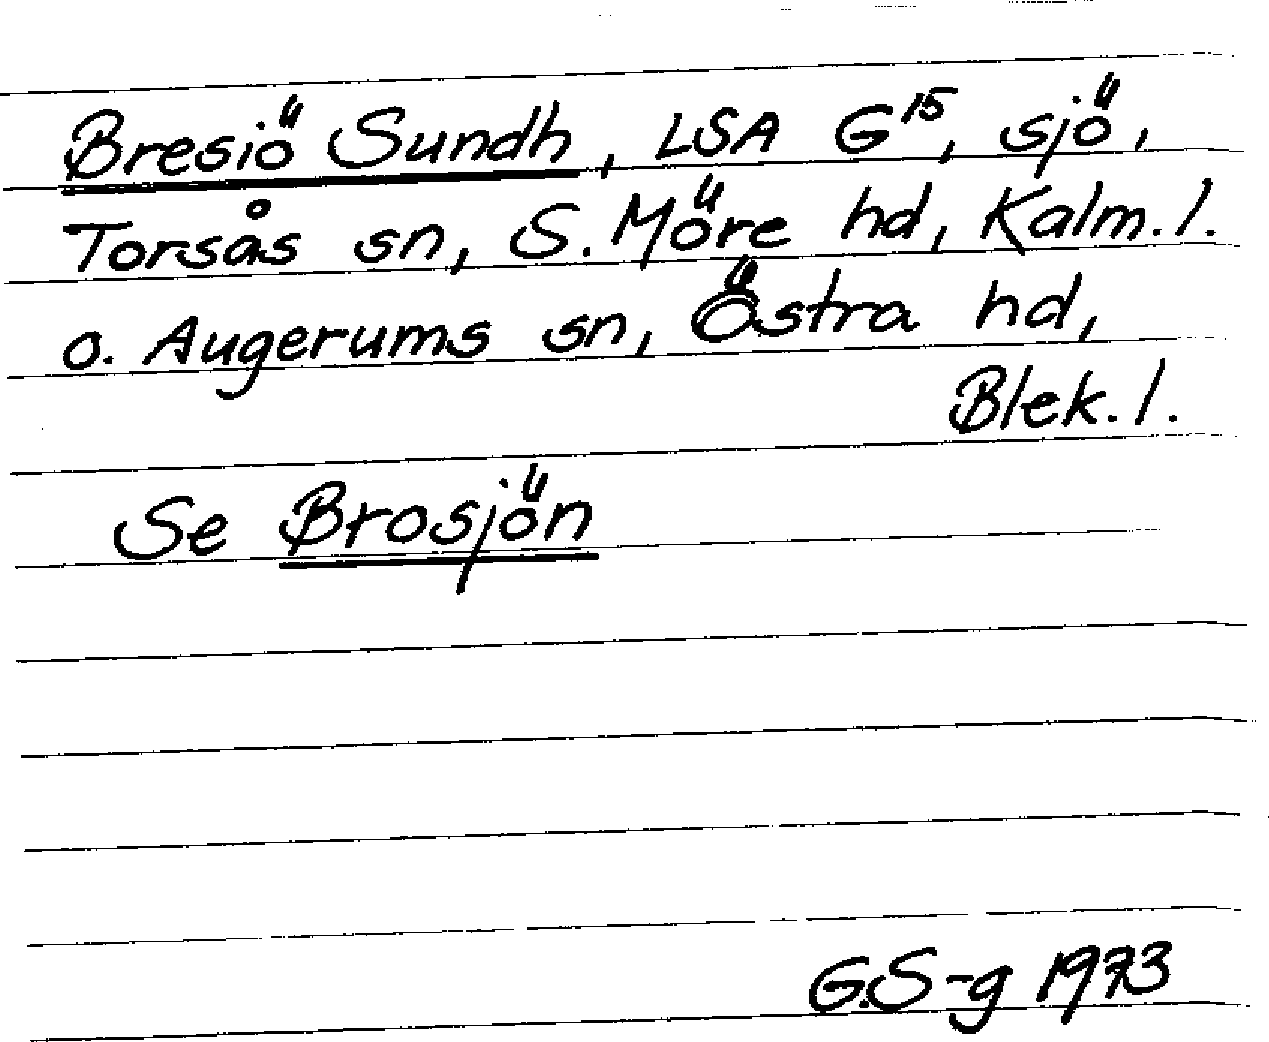 Bresiö Sundh, LSA G15, sjö,
Torsås sn, S. Möre hd, Kalm. l.
o. Augerums sn, Östra hd,
Blek. l.
Se Brosjön
G.S-g 1973